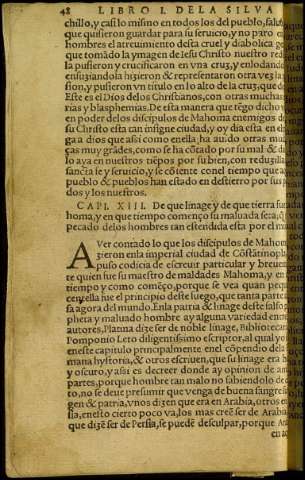 48 LIBRO I. DE LA SILVA
chillo, y casi lo mismo en todos los del pueblo, salvo
que quisieron guardar para su seruicio, y no paro en
hombres el atreuimiento desta cruel y diabolica ge
que tomãdo la ymagen de Iesu Christo nuestro re
la pusieron y crucificaron en vna cruz, y enlodando
ensuziandola hizieron & representaron otra vez la
sion, y pusieron vn titulo en lo alto de la cruz, que de
Este es el Dios de los Christianos, con otras muchas
rias y blasphemias. De esta manera que tẽgo dicho
en poder delos discipulos de Mahoma enemigos d
su Christo esta tan insigne ciudad, y oy dia esta en el
ga a dios que assi como enella ha auido otras mu
gas muy grãdes, como se ha cõtado por su mal & di
lo aya en nuestros tiẽpos por su bien, con reduzilla
sanctia ley y seruicio, y se cõtente conel tiempo que a
pueblo & pueblos han estado en destierro por sus p
dos y los nuestros.
CAPI. XIII. De que linage y de que tierra fue
homa, y en que tiempo començo su maluada secta,
pecado delos hombres tan estendida esta por el mu
AVer contado lo que los discipulos de Mahom
zieron enla imperial ciudad de Cõstãtinopla
puso codicia de escreuir particular y breuem
te quien fue su maestro de maldades Mahoma, y en
tiempo y como començo, porque se vea quan peq
centella fue el principio deste fuego, que tanta parte
sa agora del mundo. Enla patria & linage deste falso
pheta y maluado hombre ay alguna variedad en
autores, Platina dize ser de noble linage, Bibliotecar
Pomponio Leto diligentissimo escriptor, al qual yo
eneste capitulo principalmente en el cõpendio dela
mana hystoria, & otros escriuen, que su linage era b
y oscuro, y assi es decreer donde ay opinion de am
partes, porque hombre tan malo no sabiendo lo de
to, no se deue presumir que venga de buena sangre
gen & patria, vnos dizen que era en Arabia, otros e
sia, enesto cierto poco va, los mas creẽ ser de Arabia
que dizẽ ser de Persia, se puedẽ desculpar, porque Ar